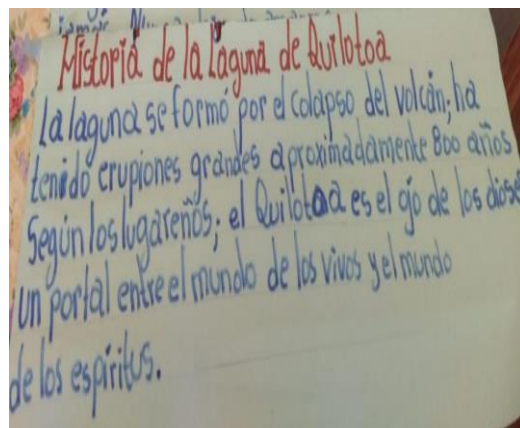 Historia de la Laguna de Quilotoa
La laguna se formó por el colapso del volcán; ha
tenido erupiones grandes aproximadamente 800 años
Según los lugareños; el Quilotoa es el ojo de los dioses
un portal entre el mundo de los vivos y el mundo
de los espíritus.